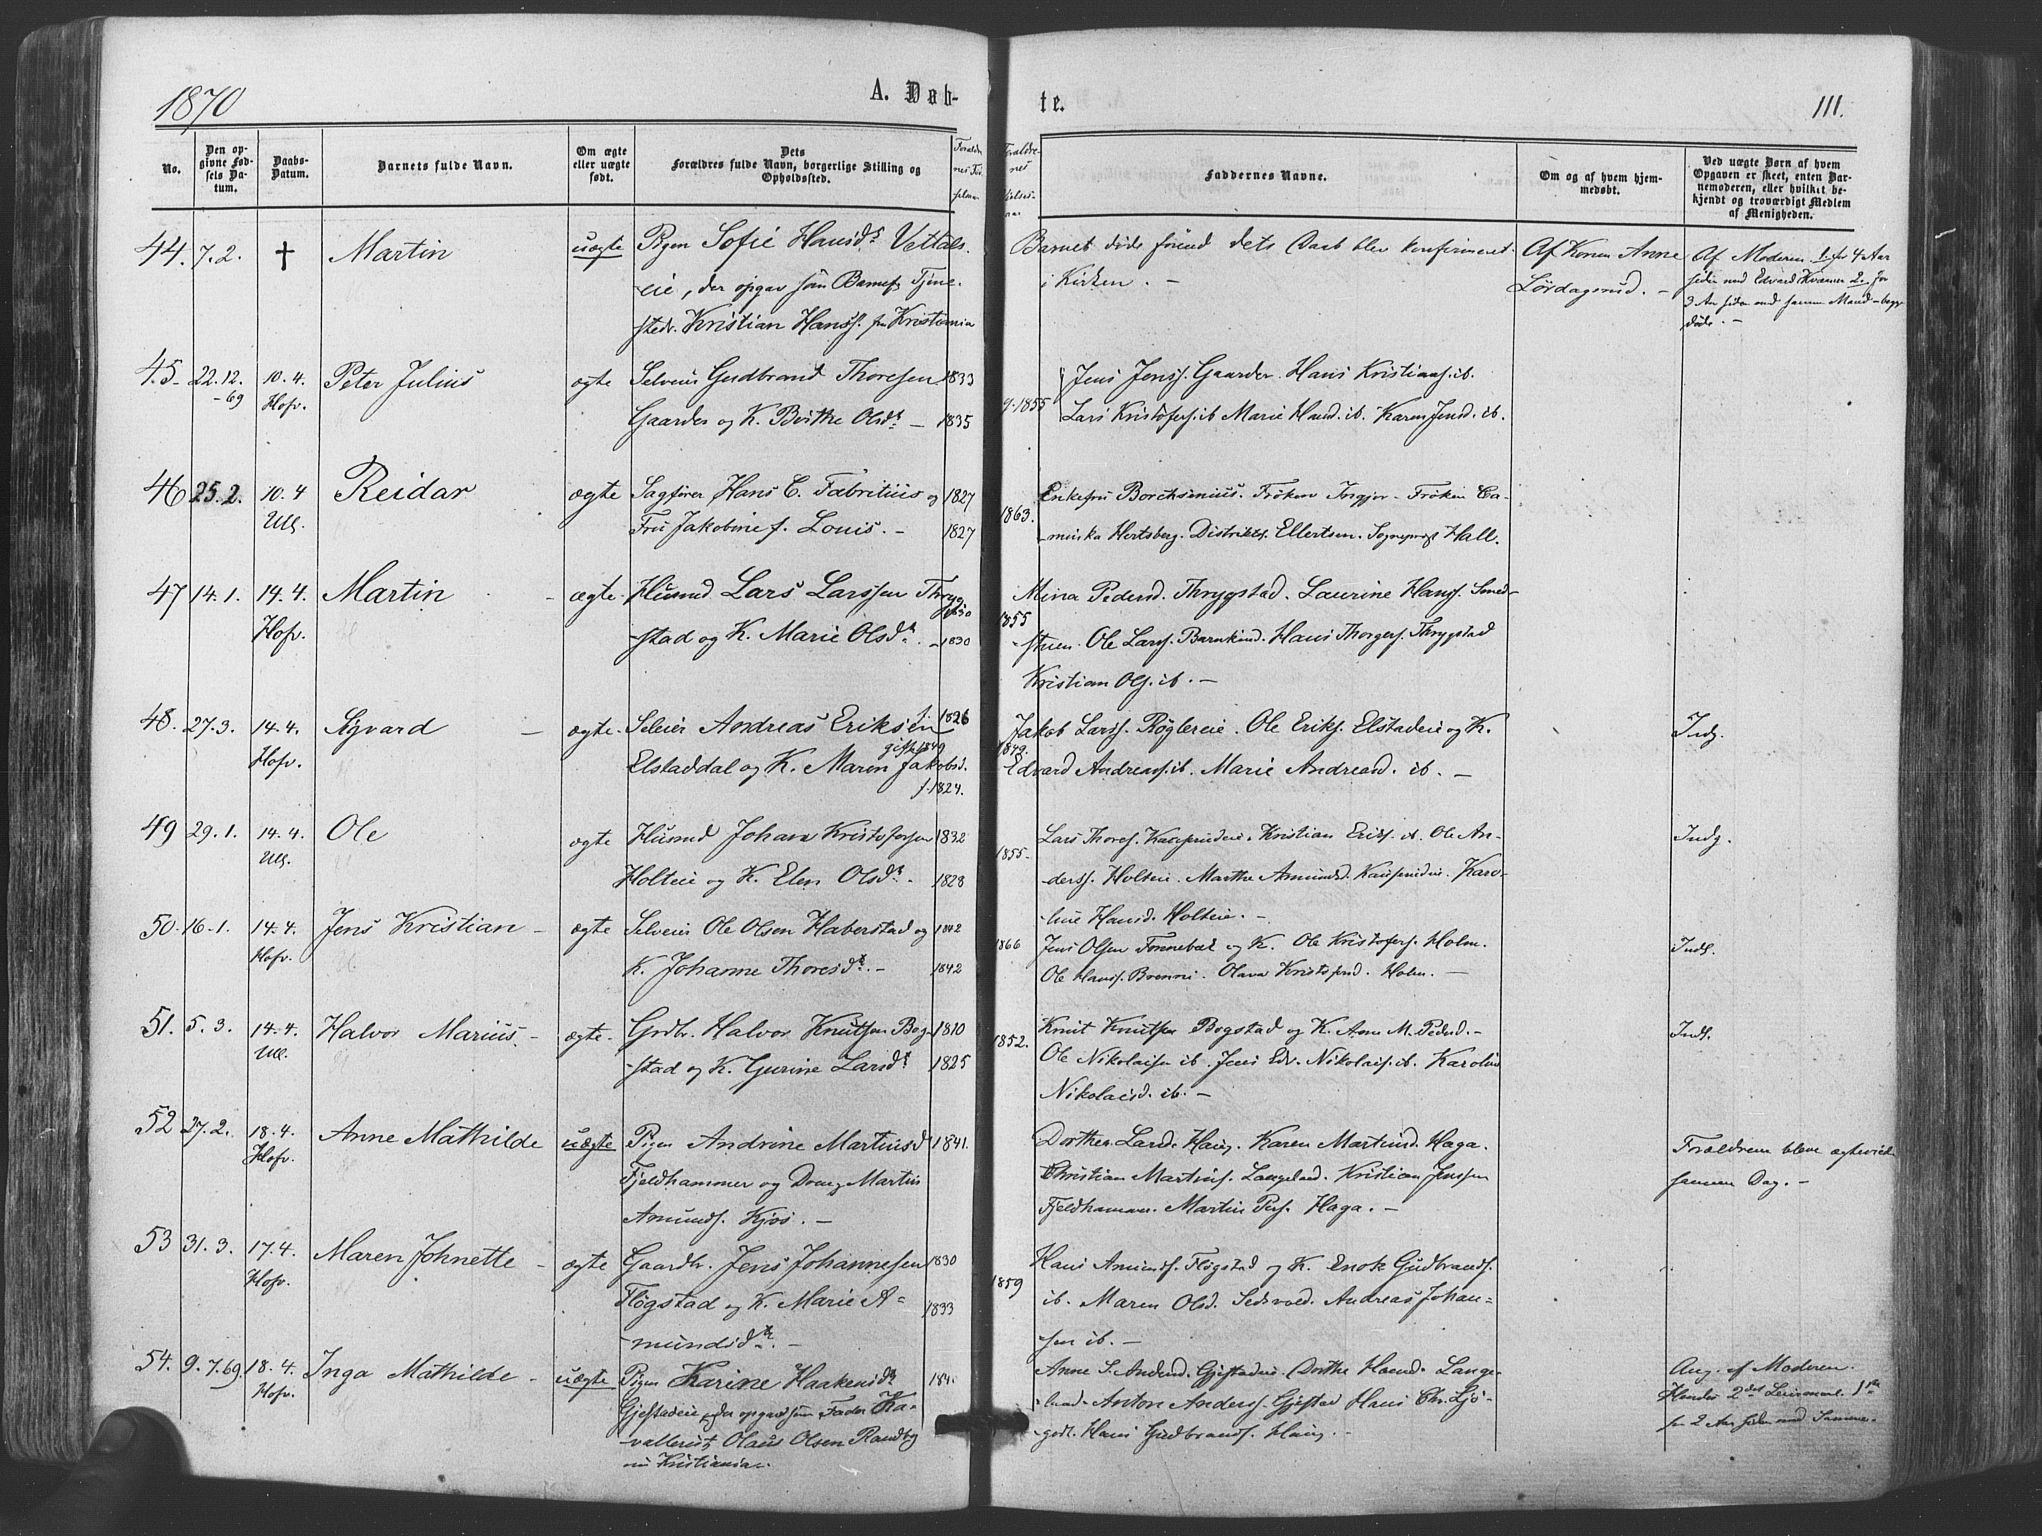 1870
A. Døb-
te.
111.
No.
Den op-
givne Fød-
sels Da-
tum.
Daabs-
Datum.
Barnets fulde Navn.
Om ægte
eller uægte
født.
Dets
Forældres fulde Navn, borgerlige Stilling og
Opholdssted.
Faddernes Navne.
Om og af hvem hjem-
medøbt.
Ved uægte Børn af hvem
Opgaven er skeet, enten Bar-
nemoderen, eller hvilket be-
kjendt og troværdigt Medlem
af Menigheden.
44. 7.2. † Martin uægte Pigen Sofie Hansd. Vettals-
eie, der opgav som Barnefr Tjene-
stedr. Kristian Hanss. fra Kristiania
Barnet døde førend dets Daab blev konfirmeret
i Kirken. –
Af Konen Anne
Lørdagsrud. –
Af Moderen 1. for 4 Aar
siden med Edvard Kværner 2. for
3 Aar siden med samme Mand – begge
døde. –
45. 22.12. 10.4. Peter Julius ægte Selveier Gudbrand Thoresen 1833
-69 Hofv. Gaarder og K. Berthe Olsd. – 1835
g. 1855
Jens Jenss. Gaarder. Hans Kristians. ib.
Lars Kristofers. ib. Marie Hansd. ib. Karen Jensd. ib.
46 25.2. 10.4 Reidar ægte Sagfører Hans C. Fabritius og 1827
Ull. Fru Jakobine f. Louis. – 1827
1863.
Enkefru Borchsenius. Frøken Ingjer- Frøken Ca-
-minka Hertsberg. Distriktsl. Ellertsen. Sogneprest Hall.
47 14.1. 14.4. Martin – ægte Husmd Lars Larssen Thryg- 1830
Hofv. -stad og K. Marie Olsd. – 1830
1855
Mina Pedersd. Thrygstad. Laurine Hanss. Smed-
-stuen. Ole Larss. Barnkind. Hans Thorgers. Thrygstad
Kristian Ols. ib. –
48. 27.3. 14.4. Sigvard – ægte Seleier Andreas Eriksen f. 1826
Hofv. Elstaddal og K. Maren Jakobsd. gift 1849
f. 1824.
1849.
Jakob Larss. Røglereie. Ole Eriks. Elstadeie og K.
Edvard Andreass. ib. Marie Andreasd. ib. –
Indg.
49 29.1. 14.4. Ole ægte Husmd Johan Kristofersen 1832
Ull. Holteie og K. Elen Olsd. – 1828
1855.
Lars Thores. Kasperudeie. Kristian Eriks. ib. Ole An-
-derss. Holteie. Marthe Amundsd. Kasperudeie. Karo-
-line Hansd. Holteie. –
Indg.
50. 16.1. 14.4. Jens Kristian – ægte Selveier Ole Olsen Haberstad og 1842
Hofv. K. Johanne Thoresd. – 1842
1866
Jens Olsen Tønnebæk og K. Ole Kristofers. Holm.
Ole Hanss. Brenni. Olava Kristofersd. Holm. –
Inds.
51. 5.3. 14.4. Halvor Marius. – ægte. Grdbr. Halvor Knutsen Bog- 1810
Ull. -stad og K. Gurine Larsd. 1825
1852.
Knut Knutsen Bogstad og K. Anne M. Pedersd. –
Ole Nikolaisen ib. Jens Edv. Nikolais. ib. Karoline
Nikolaisd. ib. –
Inds.
52 27.2. 18.4. Anne Mathilde uægte Pigen Andrine Martinsd 1841.
Hofv. Fjeldhammer og Dreng Martin
Amunds. Kjos. –
Dorthea Larsd. Haug. Karen Martinsd. Haga.
Christian Martins. Langeland. Kristian Jenssen
Fjeldhammer. Martin Pers. Haga. –
Forældrene bleve ægteviede
samme Dag. –
53 31.3. 17.4. Maren Johnette – ægte Gaardbr. Jens Johannesen 1830
Hofv. Fløgstad og K. Marie A- 1833
mundsd. –
1859
Hans Amunds. Fløgstad og K. Enok Gudbrands.
ib. Maren Olsd. Sedsvold. Andreas Johan-
sen ib. –
54. 9.7.69 18.4. Inga Mathilde – uægte Pigen Karine Haakensd. 184
Hofv. Gjestadeie der opgav som Fader Ka-
valerist Olaus Olsen Randby
nu Kristiania.
Anne S. Andersd. Gjestadeie. Dorthe Hansd. Lange-
land. Anton Anderss. Gjestad Hans Chr. Ljø-
godt. Hans Gudbrands. Haug. –
Ang. af Moderen.
Hendes 2det Leiermaal. 1ste
for 2 Aar siden med Samme. –